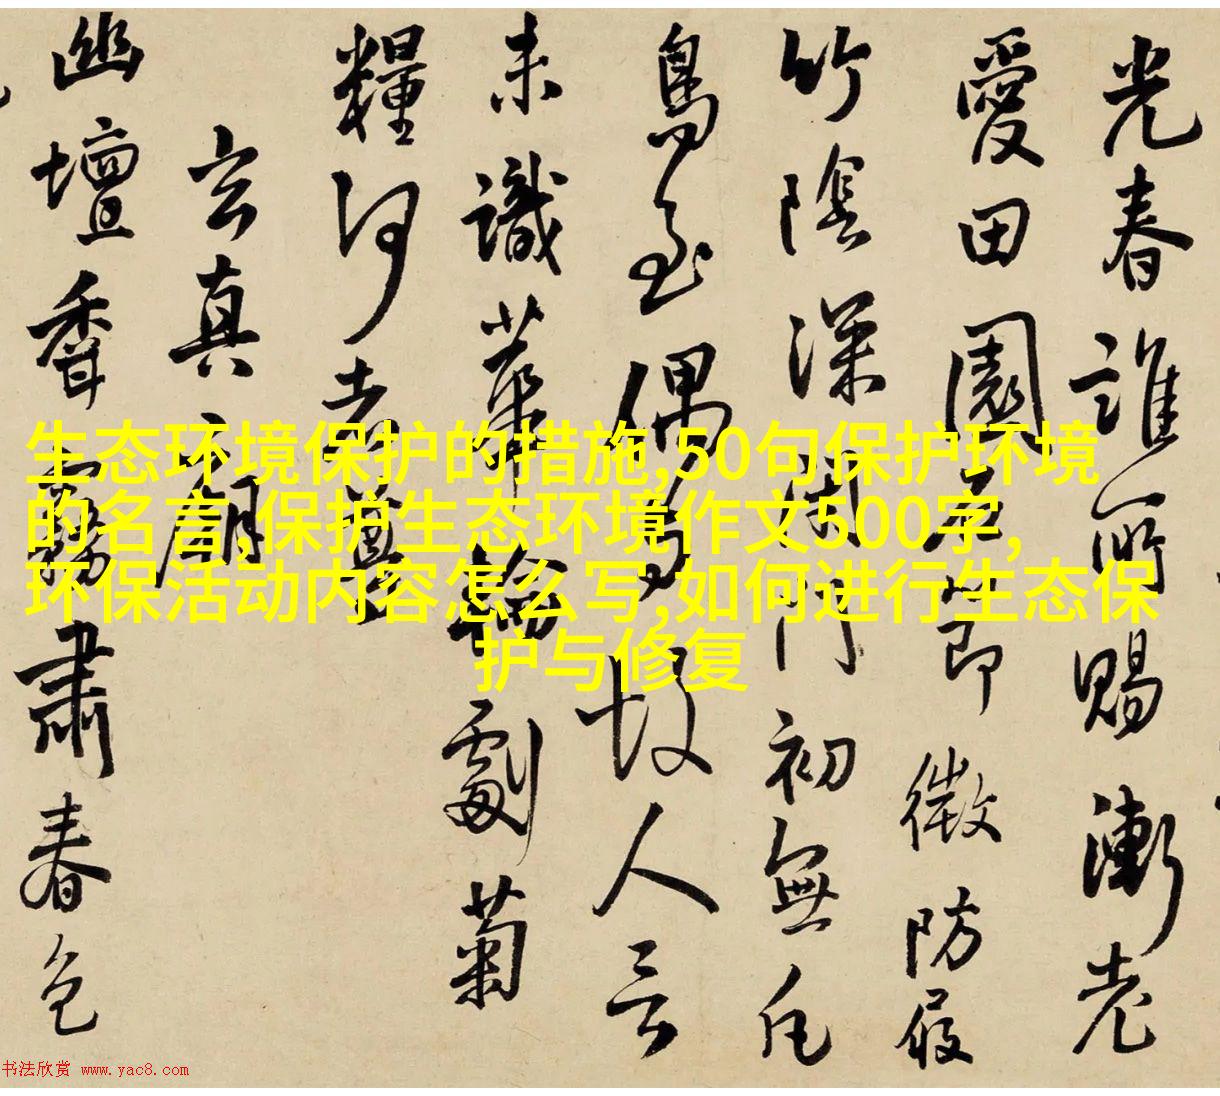 光春誰所賜漸老
愛田園石節微防屐
竹陰深閉門初無凡
鳥至偶與故人言
未識華 劇菊
糧何
玄真廟
幽壇香霧肅春色
生态环境保护的措施,50句保护环境
的名言,保护生态环境作文500字,
环保活动内容怎么写,如何进行生态保
护与修复
书法欣赏 www.yac8.com